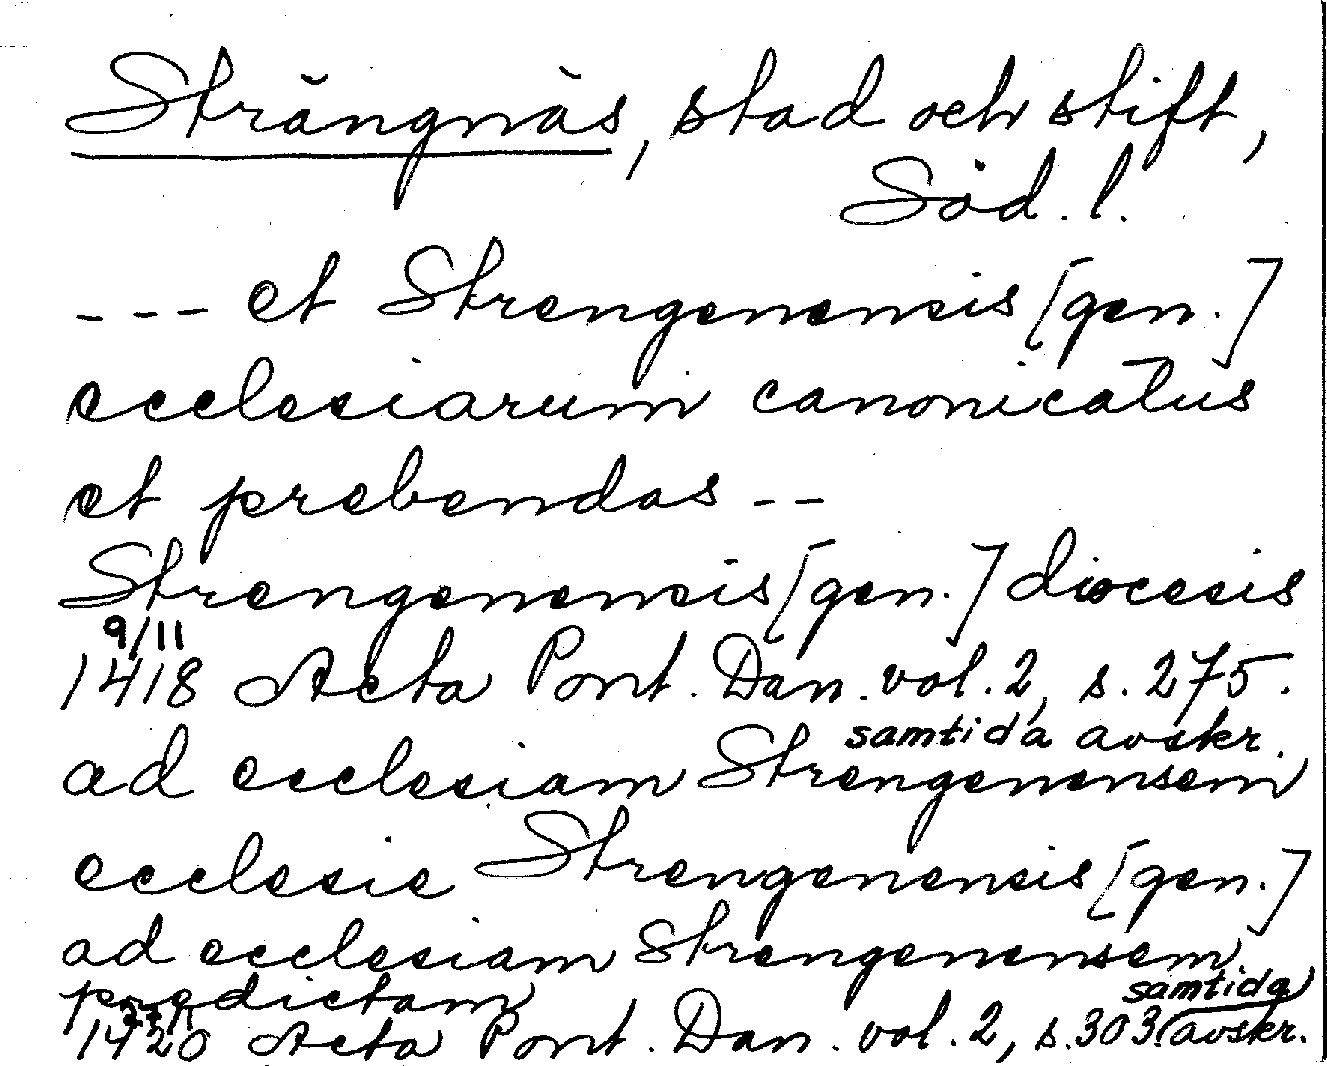 Strängnäs, stad och stift,
Söd. l.
--- et Strengenensis [gen.]
ecclesiarum canonicatus
et prebendas --
Strengenensis [gen.] diocesis
9/11
1418 Acta Pont. Dan. vol. 2, s. 275.
samtida avskr.
ad ecclesiam Strengenensem
ecclesie Strengenensis [gen.]
ad ecclesiam Strengenensem
predictam
1420 Acta Pont. Dan. vol. 2, s. 303. (samtida avskr.)